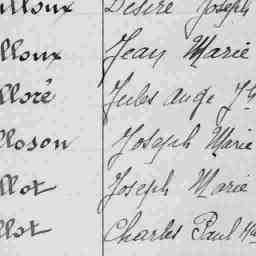 lloux Désiré Joseph
lloux Jean Marie
lloré Jules Ange
lloson Joseph Marie
llot Joseph Marie
llot Charles Paul